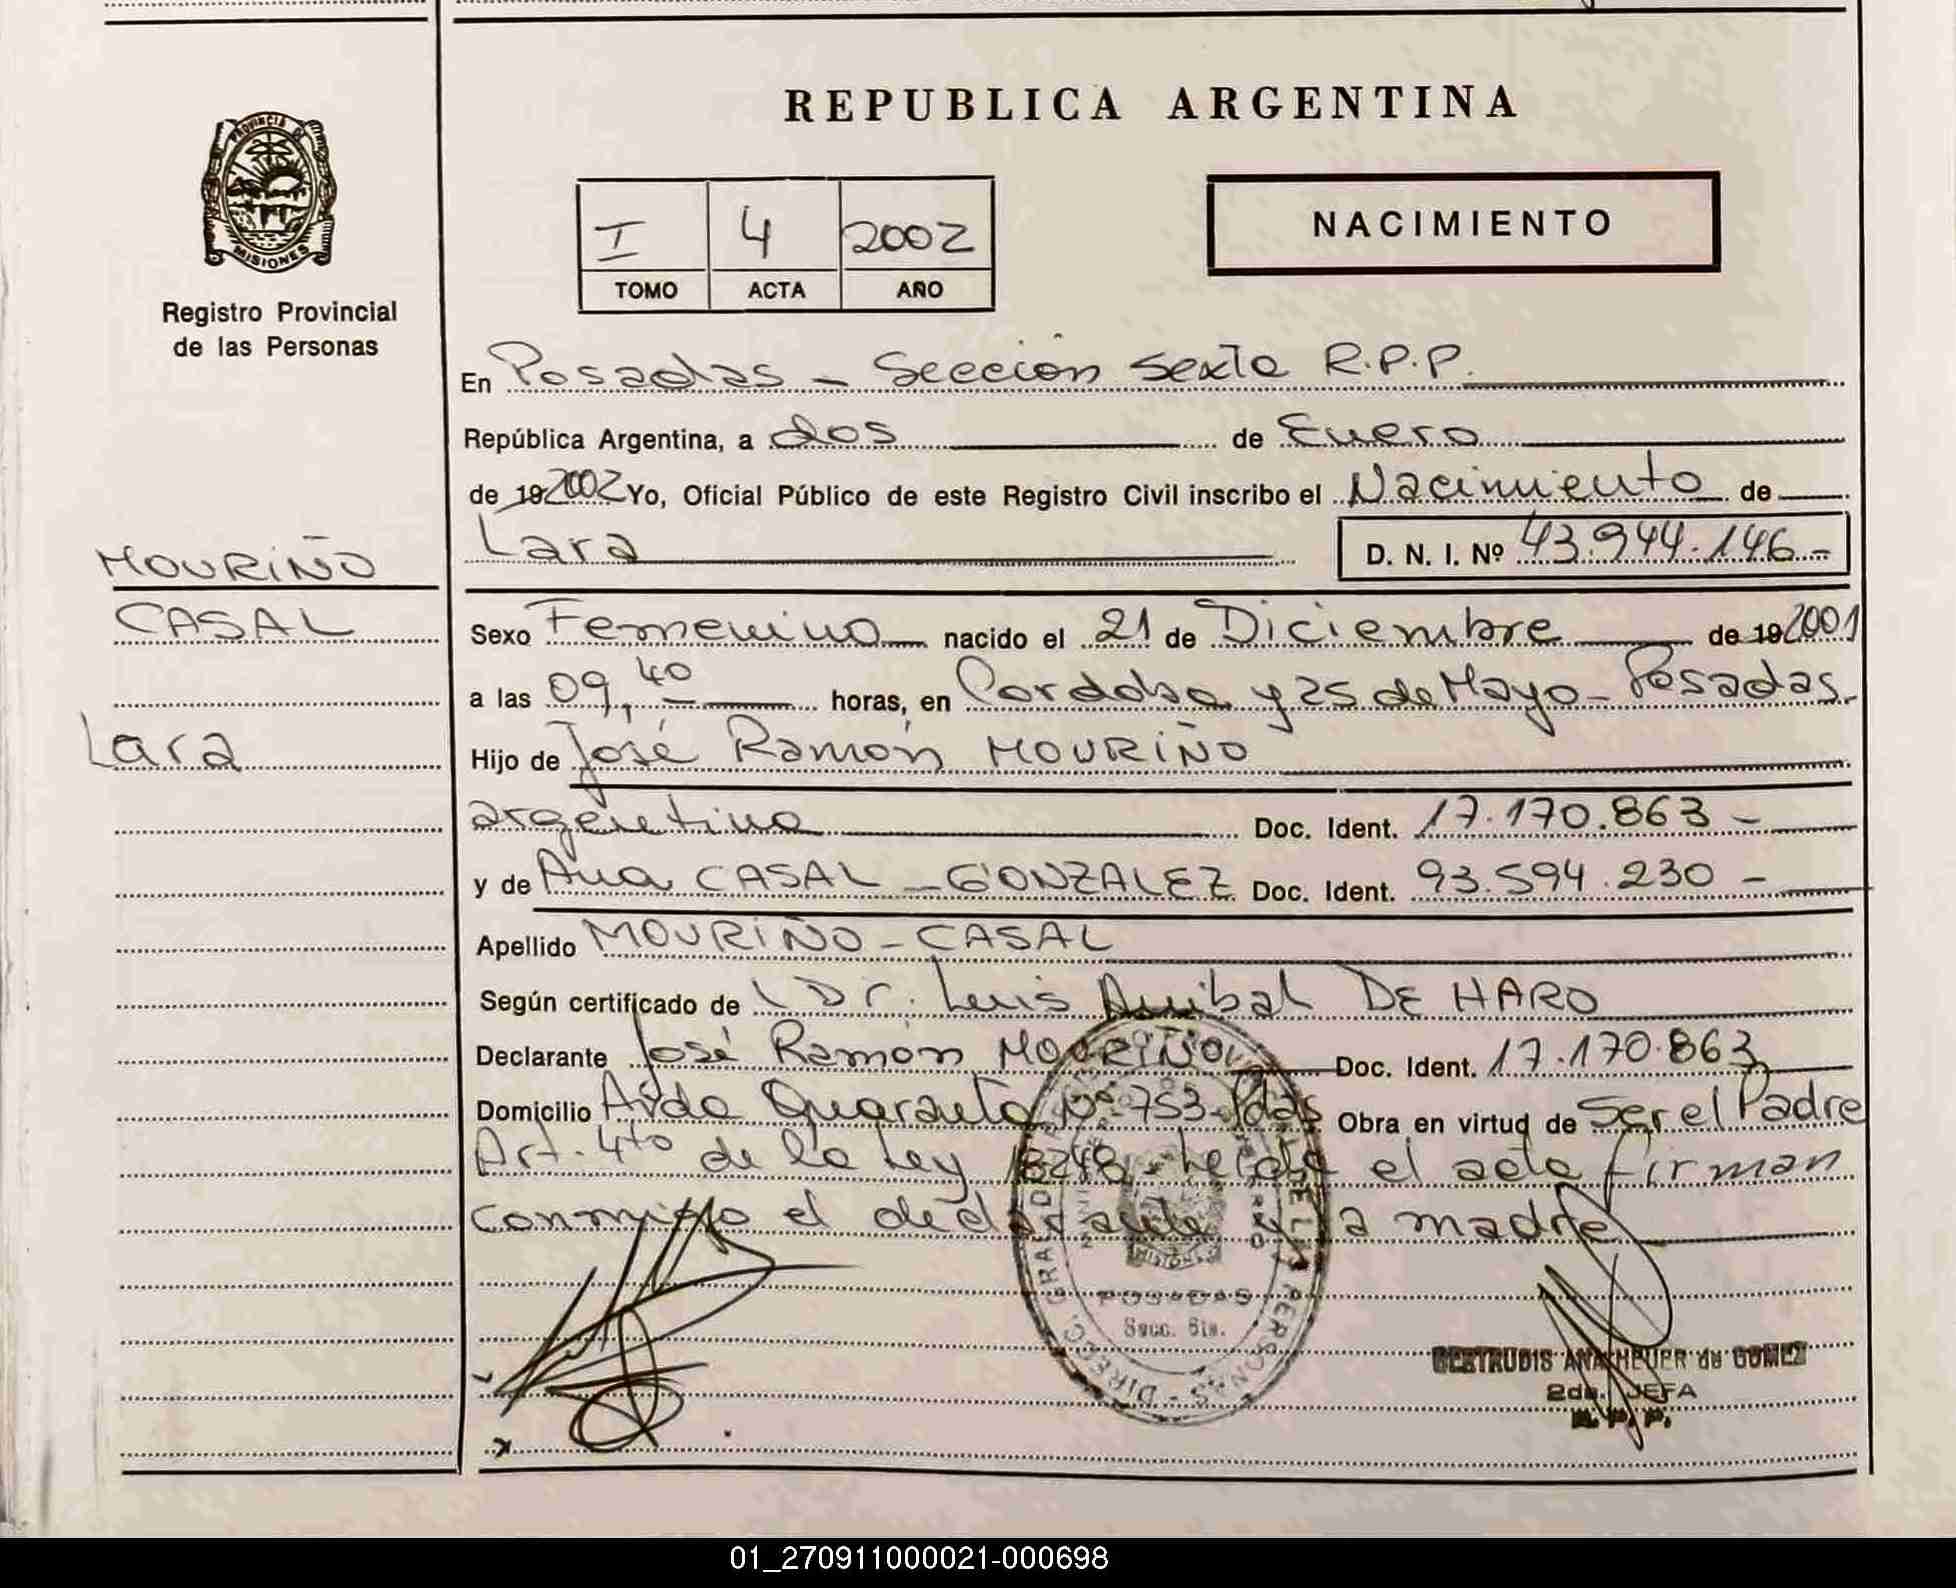 REPUBLICA ARGENTINA
PROVINCIA DE
MISIONES
Registro Provincial
de las Personas
I 4 2002
TOMO ACTA AÑO
NACIMIENTO
En Posadas - Sección Sexta R.P.P.
República Argentina, a dos de Enero
de 19 2002 Yo, Oficial Público de este Registro Civil inscribo el Nacimiento de
Lara D. N. I. Nº 43.944.146-
MOURIÑO
CASAL
Lara
Sexo Femenino nacido el 21 de Diciembre de 19 2001
a las 09,40 horas, en Cordoba y 25 de Mayo - Posadas.
Hijo de José Ramón MOURIÑO
argentino Doc. Ident. 17.170.863 -
y de Ana CASAL - GONZALEZ Doc. Ident. 93.594.230 -
Apellido MOURIÑO - CASAL
Según certificado de Dr. Luis Anibal DE HARO
Declarante José Ramón MOURIÑO Doc. Ident. 17.170.863
Domicilio Avda Quaranta Nº 753 - Pdas Obra en virtud de Ser el Padre
Art. 4to de la Ley 18248 - Leída el acta firman
conmigo el declarante y la madre
POSADAS
Secc. 6ta.
GERTRUDIS ANA HEUER de GOMEZ
2da. JEFA
R. P. P.
01_270911000021-000698